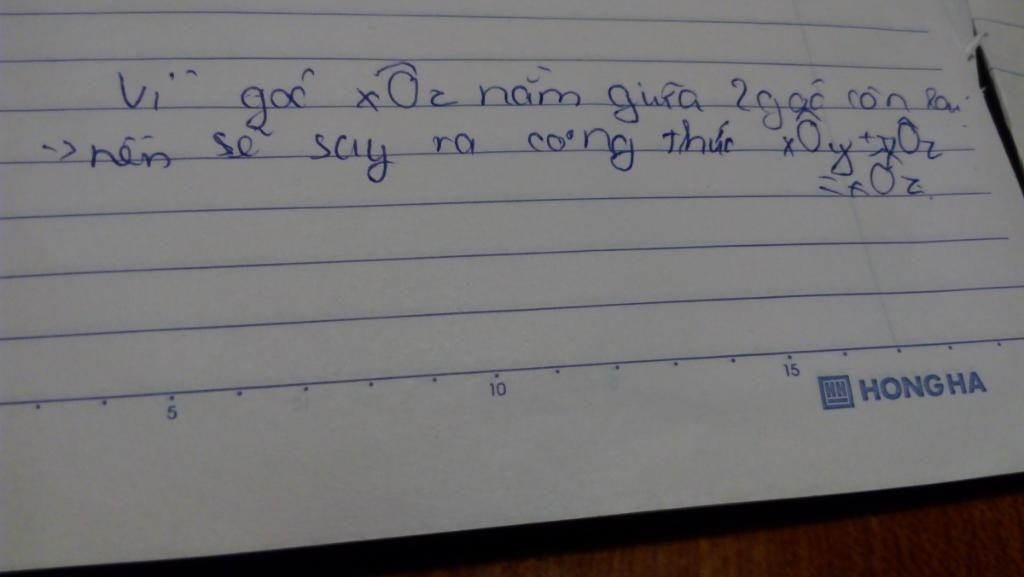 Vì góc xÔz nằm giữa 2 góc còn lại.
-> nên sẽ say ra công thức xÔy + yÔz
= xÔz.
5 10 15
HH HONG HA